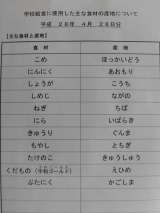 学校給食に使用した主な食材の産地について
平成 28年 4月 28日分
【主な食材と産地】
食材 産地
こめ ほっかいどう
にんにく あおもり
しょうが こうち
しめじ ながの
ねぎ ちば
にら いばらき
きゅうり ぐんま
もやし とちぎ
たけのこ きゅうしゅう
くだもの えひめ
ぶたにく かごしま